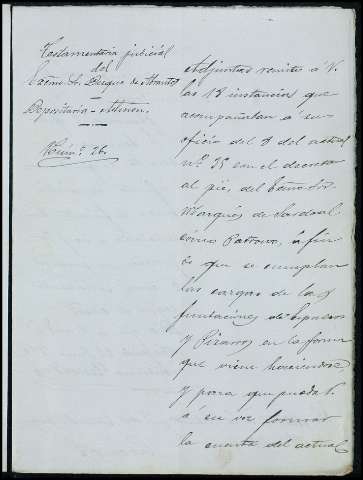 Testamentaría judicial
del
Excmo. Sr. Duque de Abrantes
Depositaría - Admon.
Núm.º 26.
Adjuntas remito a V.
las 18 instancias que
acompañaban a su
oficio del 8 del actual
nº 35 con el decreto
al pié del
Marqués de Sardoal
como Patrono, á fin
de que se cumplan
las cargas de las
fundaciones de
y Pizarro en la forma
que viene haciendose,
y para que pueda V.
á su vez formar
la cuenta del actual